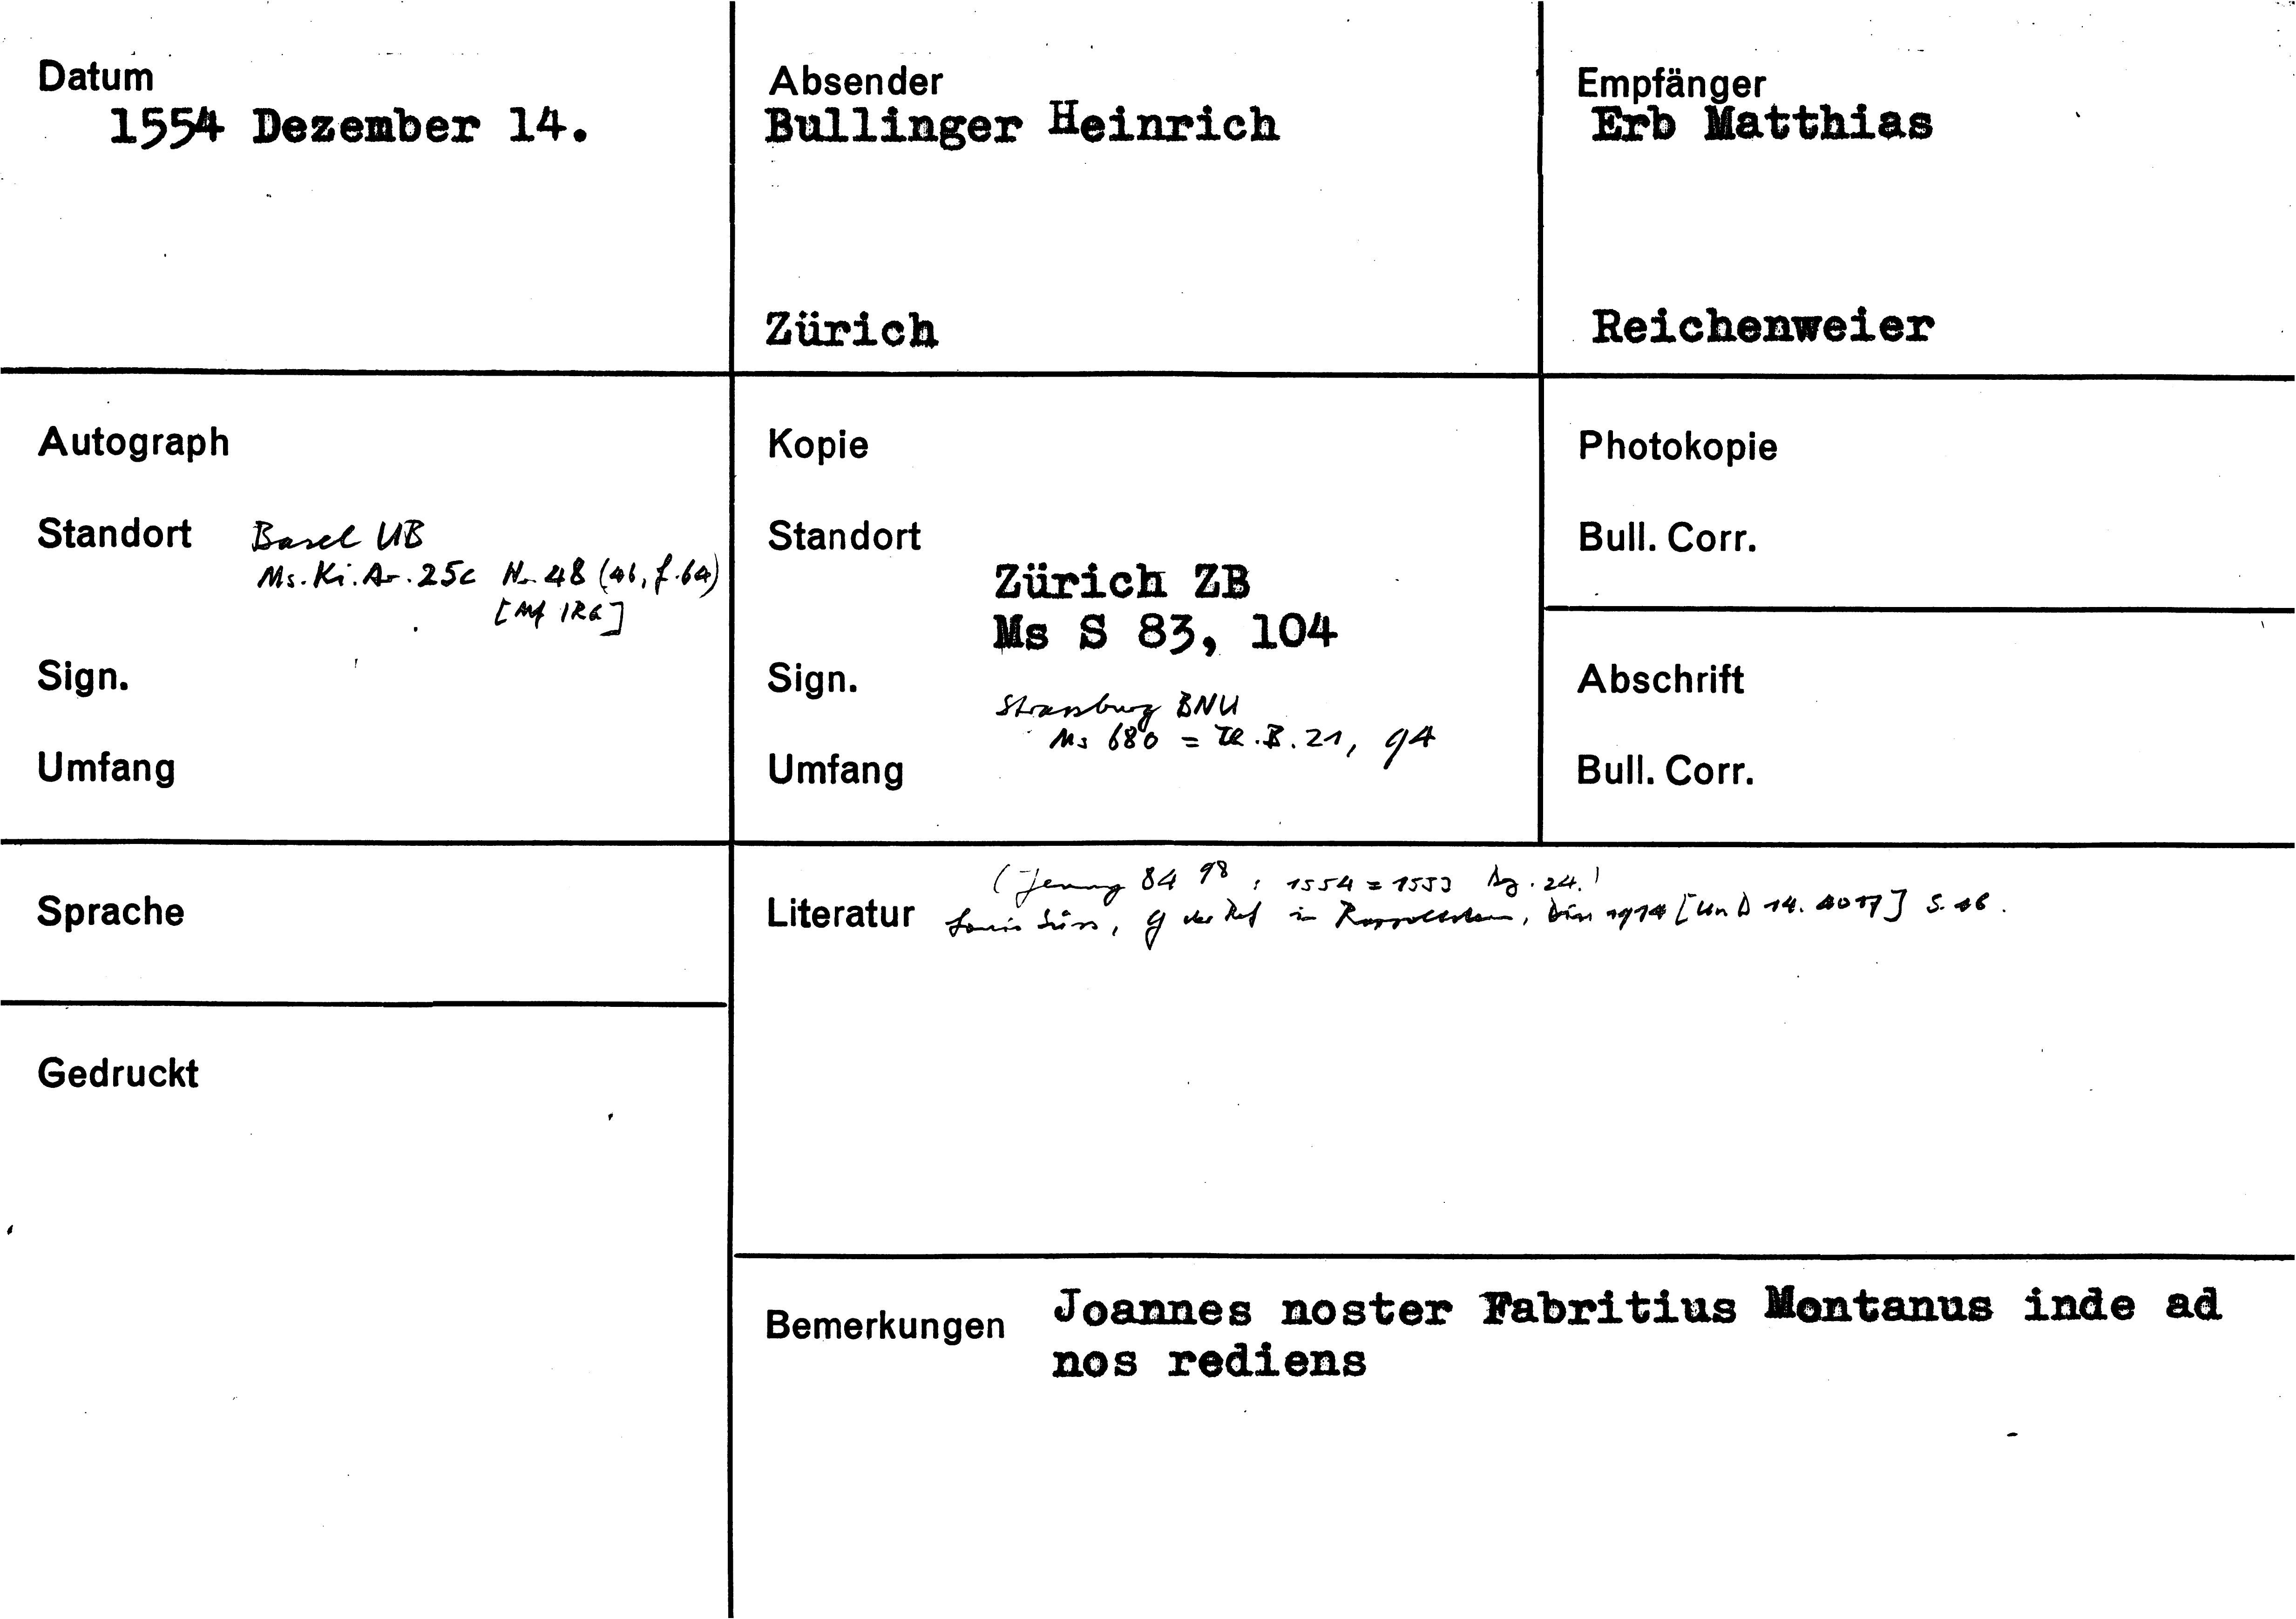 Datum
1554 Dezember 14.
Absender
Bullinger Heinrich
Zürich
Empfänger
Erb Matthias
Reichenweier
Autograph
Standort Basel UB
Ms. Ki. Ar. 25c Nr. 48 (46, f. 64)
[Mf IRG]
Sign.
Umfang
Kopie
Standort
Zürich ZB
Ms S 83, 104
Sign.
Strassburg BNU
Ms 680 = Th. B. 21, 94
Umfang
Photokopie
Bull. Corr.
Abschrift
Bull. Corr.
Sprache
Gedruckt
(Jenny 84 98 : 1554 = 1553 Dez. 24.)
Literatur Louis Süss, G der Ref in Rappoltstein, Diss 1914 [Un D 14. 4017] S. 16.
Bemerkungen Joannes noster Fabritius Montanus inde ad
nos rediens